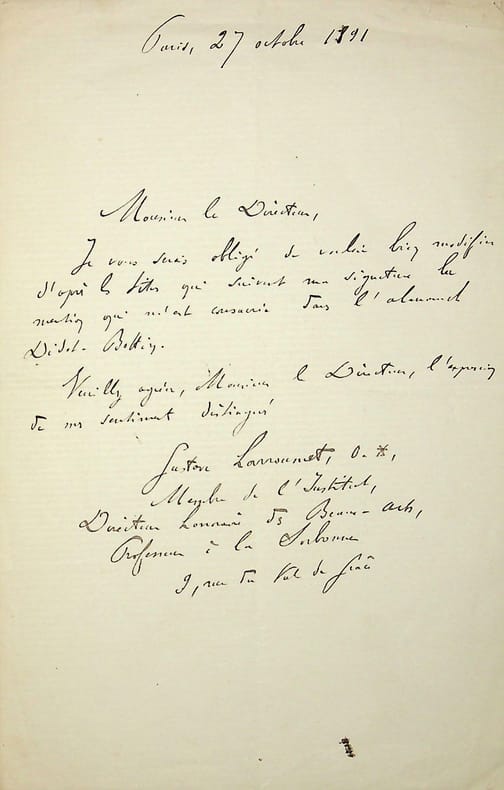 Paris, 27 octobre 1891
Monsieur le Directeur,
Je vous serais obligé de vouloir bien modifier
d'après les titres qui suivent ma signature la
mention qui m'est consacrée dans l'almanach
Didot-Bottin.
Veuillez agréer, Monsieur le Directeur, l'expression
de mes sentiments distingués
Gustave Larroumet, O. *,
Membre de l'Institut,
Directeur honoraire des Beaux-arts,
Professeur à la Sorbonne
9, rue du Val de Grâce